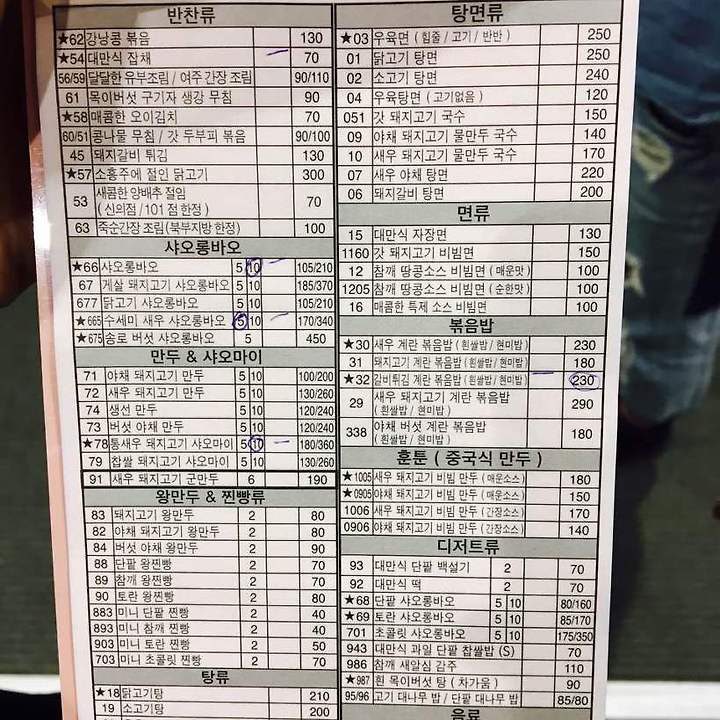 반찬류
★62 강낭콩 볶음 130
★54 대만식 잡채 70
56/59 달달한 유부조림 / 여주 간장 조림 90/110
61 목이버섯 구기자 생강 무침 90
★58 매콤한 오이김치 70
60/51 콩나물 무침 / 갓 두부피 볶음 90/100
45 돼지갈비 튀김 130
★57 소흥주에 절인 닭고기 300
53 새콤한 양배추 절임
( 신의점 / 101 점 한정 ) 70
63 죽순간장 조림(북부지방 한정) 100
샤오롱바오
★66 샤오롱바오 5 10 105/210
67 게살 돼지고기 샤오롱바오 5 10 185/370
677 닭고기 샤오롱바오 5 10 105/210
★665 수세미 새우 샤오롱바오 5 10 170/340
★675 송로 버섯 샤오롱바오 5 450
만두 & 샤오마이
71 야채 돼지고기 만두 5 10 100/200
72 새우 돼지고기 만두 5 10 130/260
74 생선 만두 5 10 120/240
73 버섯 야채 만두 5 10 120/240
★78 통새우 돼지고기 샤오마이 5 10 180/360
79 찹쌀 돼지고기 샤오마이 5 10 130/260
91 새우 돼지고기 군만두 6 190
왕만두 & 찐빵류
83 돼지고기 왕만두 2 80
82 야채 돼지고기 왕만두 2 80
84 버섯 야채 왕만두 2 90
88 단팥 왕찐빵 2 70
89 참깨 왕찐빵 2 70
90 토란 왕찐빵 2 80
883 미니 단팥 찐빵 2 40
893 미니 참깨 찐빵 2 40
903 미니 토란 찐빵 2 50
703 미니 초콜릿 찐빵 2 70
탕류
★18 닭고기탕 210
19 소고기탕 200
탕면류
★03 우육면 ( 힘줄 / 고기 / 반반 ) 250
01 닭고기 탕면 250
02 소고기 탕면 240
04 우육탕면 ( 고기없음 ) 120
051 갓 돼지고기 국수 150
09 야채 돼지고기 물만두 국수 140
10 새우 돼지고기 물만두 국수 170
07 새우 야채 탕면 220
06 돼지갈비 탕면 200
면류
15 대만식 자장면 130
1160 갓 돼지고기 비빔면 150
12 참깨 땅콩소스 비빔면 ( 매운맛 ) 100
1205 참깨 땅콩소스 비빔면 ( 순한맛 ) 100
16 매콤한 특제 소스 비빔면 100
볶음밥
★30 새우 계란 볶음밥 ( 흰쌀밥 / 현미밥 ) 230
31 돼지고기 계란 볶음밥 ( 흰쌀밥 / 현미밥 ) 180
★32 갈비튀김 계란 볶음밥 ( 흰쌀밥 / 현미밥 ) 230
29 새우 돼지고기 계란 볶음밥
( 흰쌀밥 / 현미밥 ) 290
338 야채 버섯 계란 볶음밥
( 흰쌀밥 / 현미밥 ) 180
훈툰 ( 중국식 만두 )
★1005 새우 돼지고기 비빔 만두 ( 매운소스 ) 180
★0905 야채 돼지고기 비빔 만두 ( 매운소스 ) 150
1006 새우 돼지고기 비빔 만두 ( 간장소스 ) 170
0906 야채 돼지고기 비빔 만두 ( 간장소스 ) 140
디저트류
93 대만식 단팥 백설기 2 70
92 대만식 떡 2 70
★68 단팥 샤오롱바오 5 10 80/160
★69 토란 샤오롱바오 5 10 85/170
701 초콜릿 샤오롱바오 5 10 175/350
943 대만식 과일 단팥 찹쌀밥 (S) 70
986 참깨 새알심 감주 110
★987 흰 목이버섯 탕 ( 차가움 ) 90
95/96 고기 대나무 밥 / 단팥 대나무 밥 85/80
음료